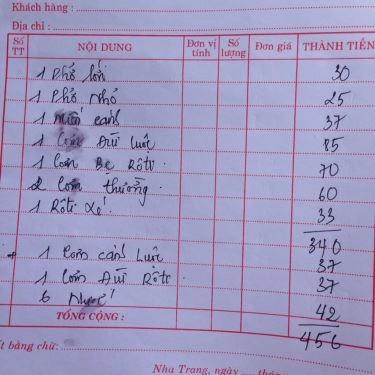 Khách hàng :
Địa chỉ :
Số TT NỘI DUNG Đơn vị tính Số lượng Đơn giá THÀNH TIỀN
1 Phở lớn 30
1 Phở Nhỏ 25
1 cánh 37
1 Cơm Đùi Luộc 85
1 Cơm Bẹ Rôti 70
2 Cơm thường 60
1 Rôti Xé 33
340
1 Cơm cánh Luộc 37
1 Cơm Đùi Rôti 37
6 Nước 42
TỔNG CỘNG : 456
bằng chữ:
Nha Trang, ngày